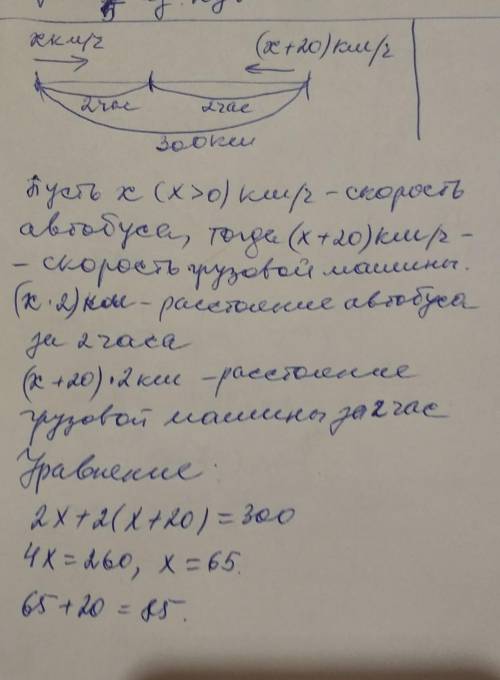 х км/ч (х+20) км/ч
2 час 2 час
300 км
Пусть х (х>0) км/ч - скорость
автобуса, тогда (х+20) км/ч -
- скорость грузовой машины.
(х·2) км - расстояние автобуса
за 2 часа
(х+20)·2 км - расстояние
грузовой машины за 2 час
Уравнение:
2х+2(х+20)=300
4х=260, х=65.
65+20=85.